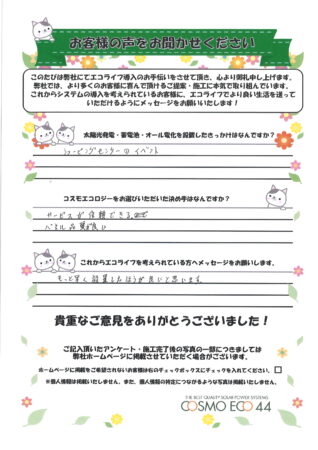 お客様の声をお聞かせください
このたびは弊社にてエコライフ導入のお手伝いをさせて頂き、心より御礼申し上げます。
弊社では、より多くのお客様に喜んで頂けるご提案・施工に本気で取り組んでいます。
これからシステムの導入を考えられているお客様に、エコライフでより良い生活を送って
いただけるようにメッセージをお願いいたします！
太陽光発電・蓄電池・オール電化を設置したきっかけはなんですか？
ショッピングセンターのイベント
コスモエコロジーをお選びいただいた決め手はなんですか？
サービスが信頼できる
パネル品質が良い
これからエコライフを考えられている方へメッセージをお願いします。
もっと早く設置したほうが良いと思います。
貴重なご意見をありがとうございました！
ご記入頂いたアンケート・施工完了後の写真の一部につきましては
弊社ホームページに掲載させていただく場合がございます。
ホームページに掲載をご希望されないお客様は右のチェックボックスにチェックを入れてください。
※個人情報は掲載いたしません。また、個人情報の特定につながるような写真は掲載いたしません。
THE BEST QUALITY SOLAR POWER SYSTEMS
COSMO ECO 44